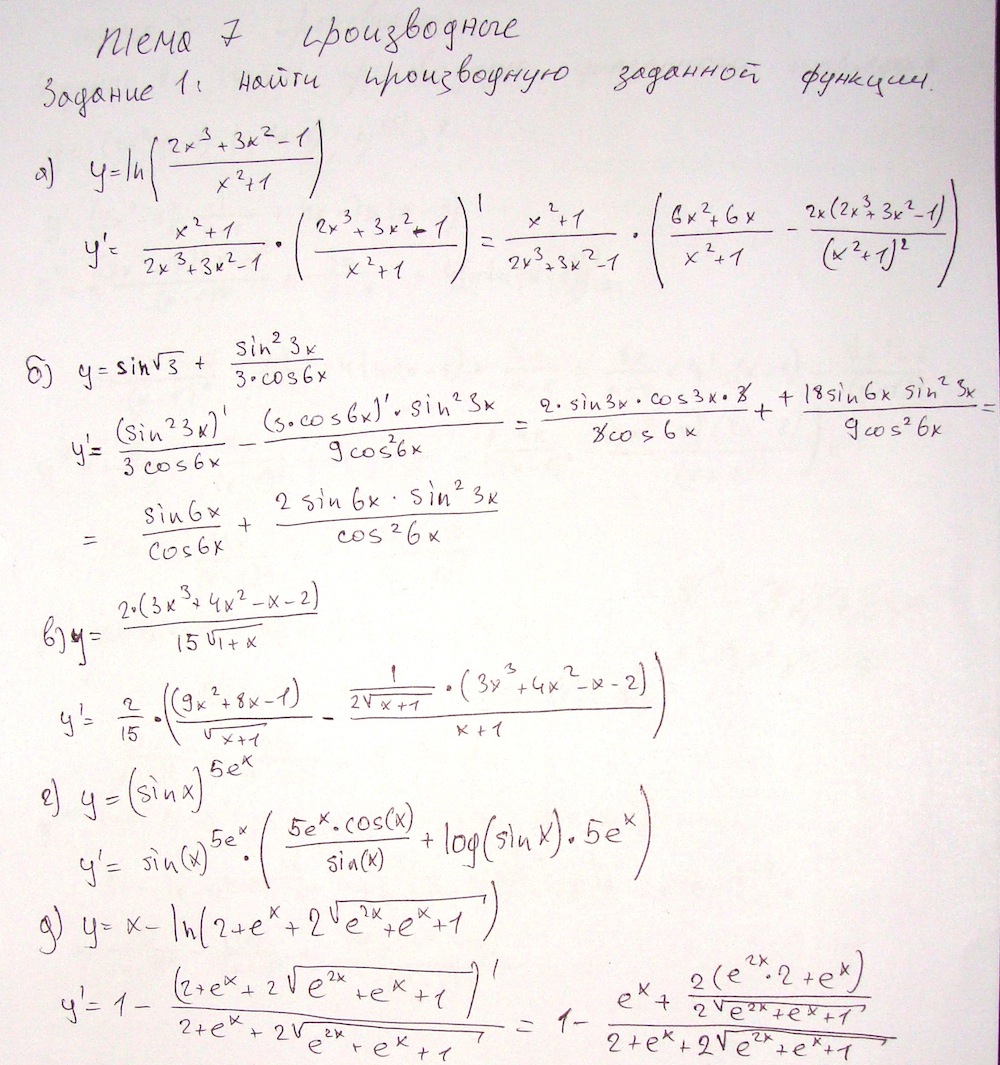 Тема 7 производные
Задание 1: найти производную заданной функции.
а) y=ln((2x³+3x²-1)/(x²+1))
y'= (x²+1)/(2x³+3x²-1) • ((2x³+3x²-1)/(x²+1))' = (x²+1)/(2x³+3x²-1) • ((6x²+6x)/(x²+1) - (2x(2x³+3x²-1))/(x²+1)²)
б) y=sin√3 + (sin²3x)/(3•cos6x)
y'= (sin²3x)'/(3cos6x) - ((3•cos6x)'•sin²3x)/(9cos²6x) = (2•sin3x•cos3x•3)/(3cos6x) + + (18sin6x sin²3x)/(9cos²6x) =
= (sin6x)/(cos6x) + (2sin6x•sin²3x)/(cos²6x)
в) y= (2•(3x³+4x²-x-2))/(15√(1+x))
y'= 2/15 • ((9x²+8x-1)/√(x+1) - (1/(2√(x+1)) • (3x³+4x²-x-2))/(x+1))
г) y=(sinx)^(5eˣ)
y'= sin(x)^(5eˣ) • ((5eˣ•cos(x))/sin(x) + log(sinx)•5eˣ)
д) y=x-ln(2+eˣ+2√(e²ˣ+eˣ+1))
y'=1- (2+eˣ+2√(e²ˣ+eˣ+1))'/(2+eˣ+2√(e²ˣ+eˣ+1)) = 1- (eˣ+ (2(e²ˣ•2+eˣ))/(2√(e²ˣ+eˣ+1)))/(2+eˣ+2√(e²ˣ+eˣ+1))